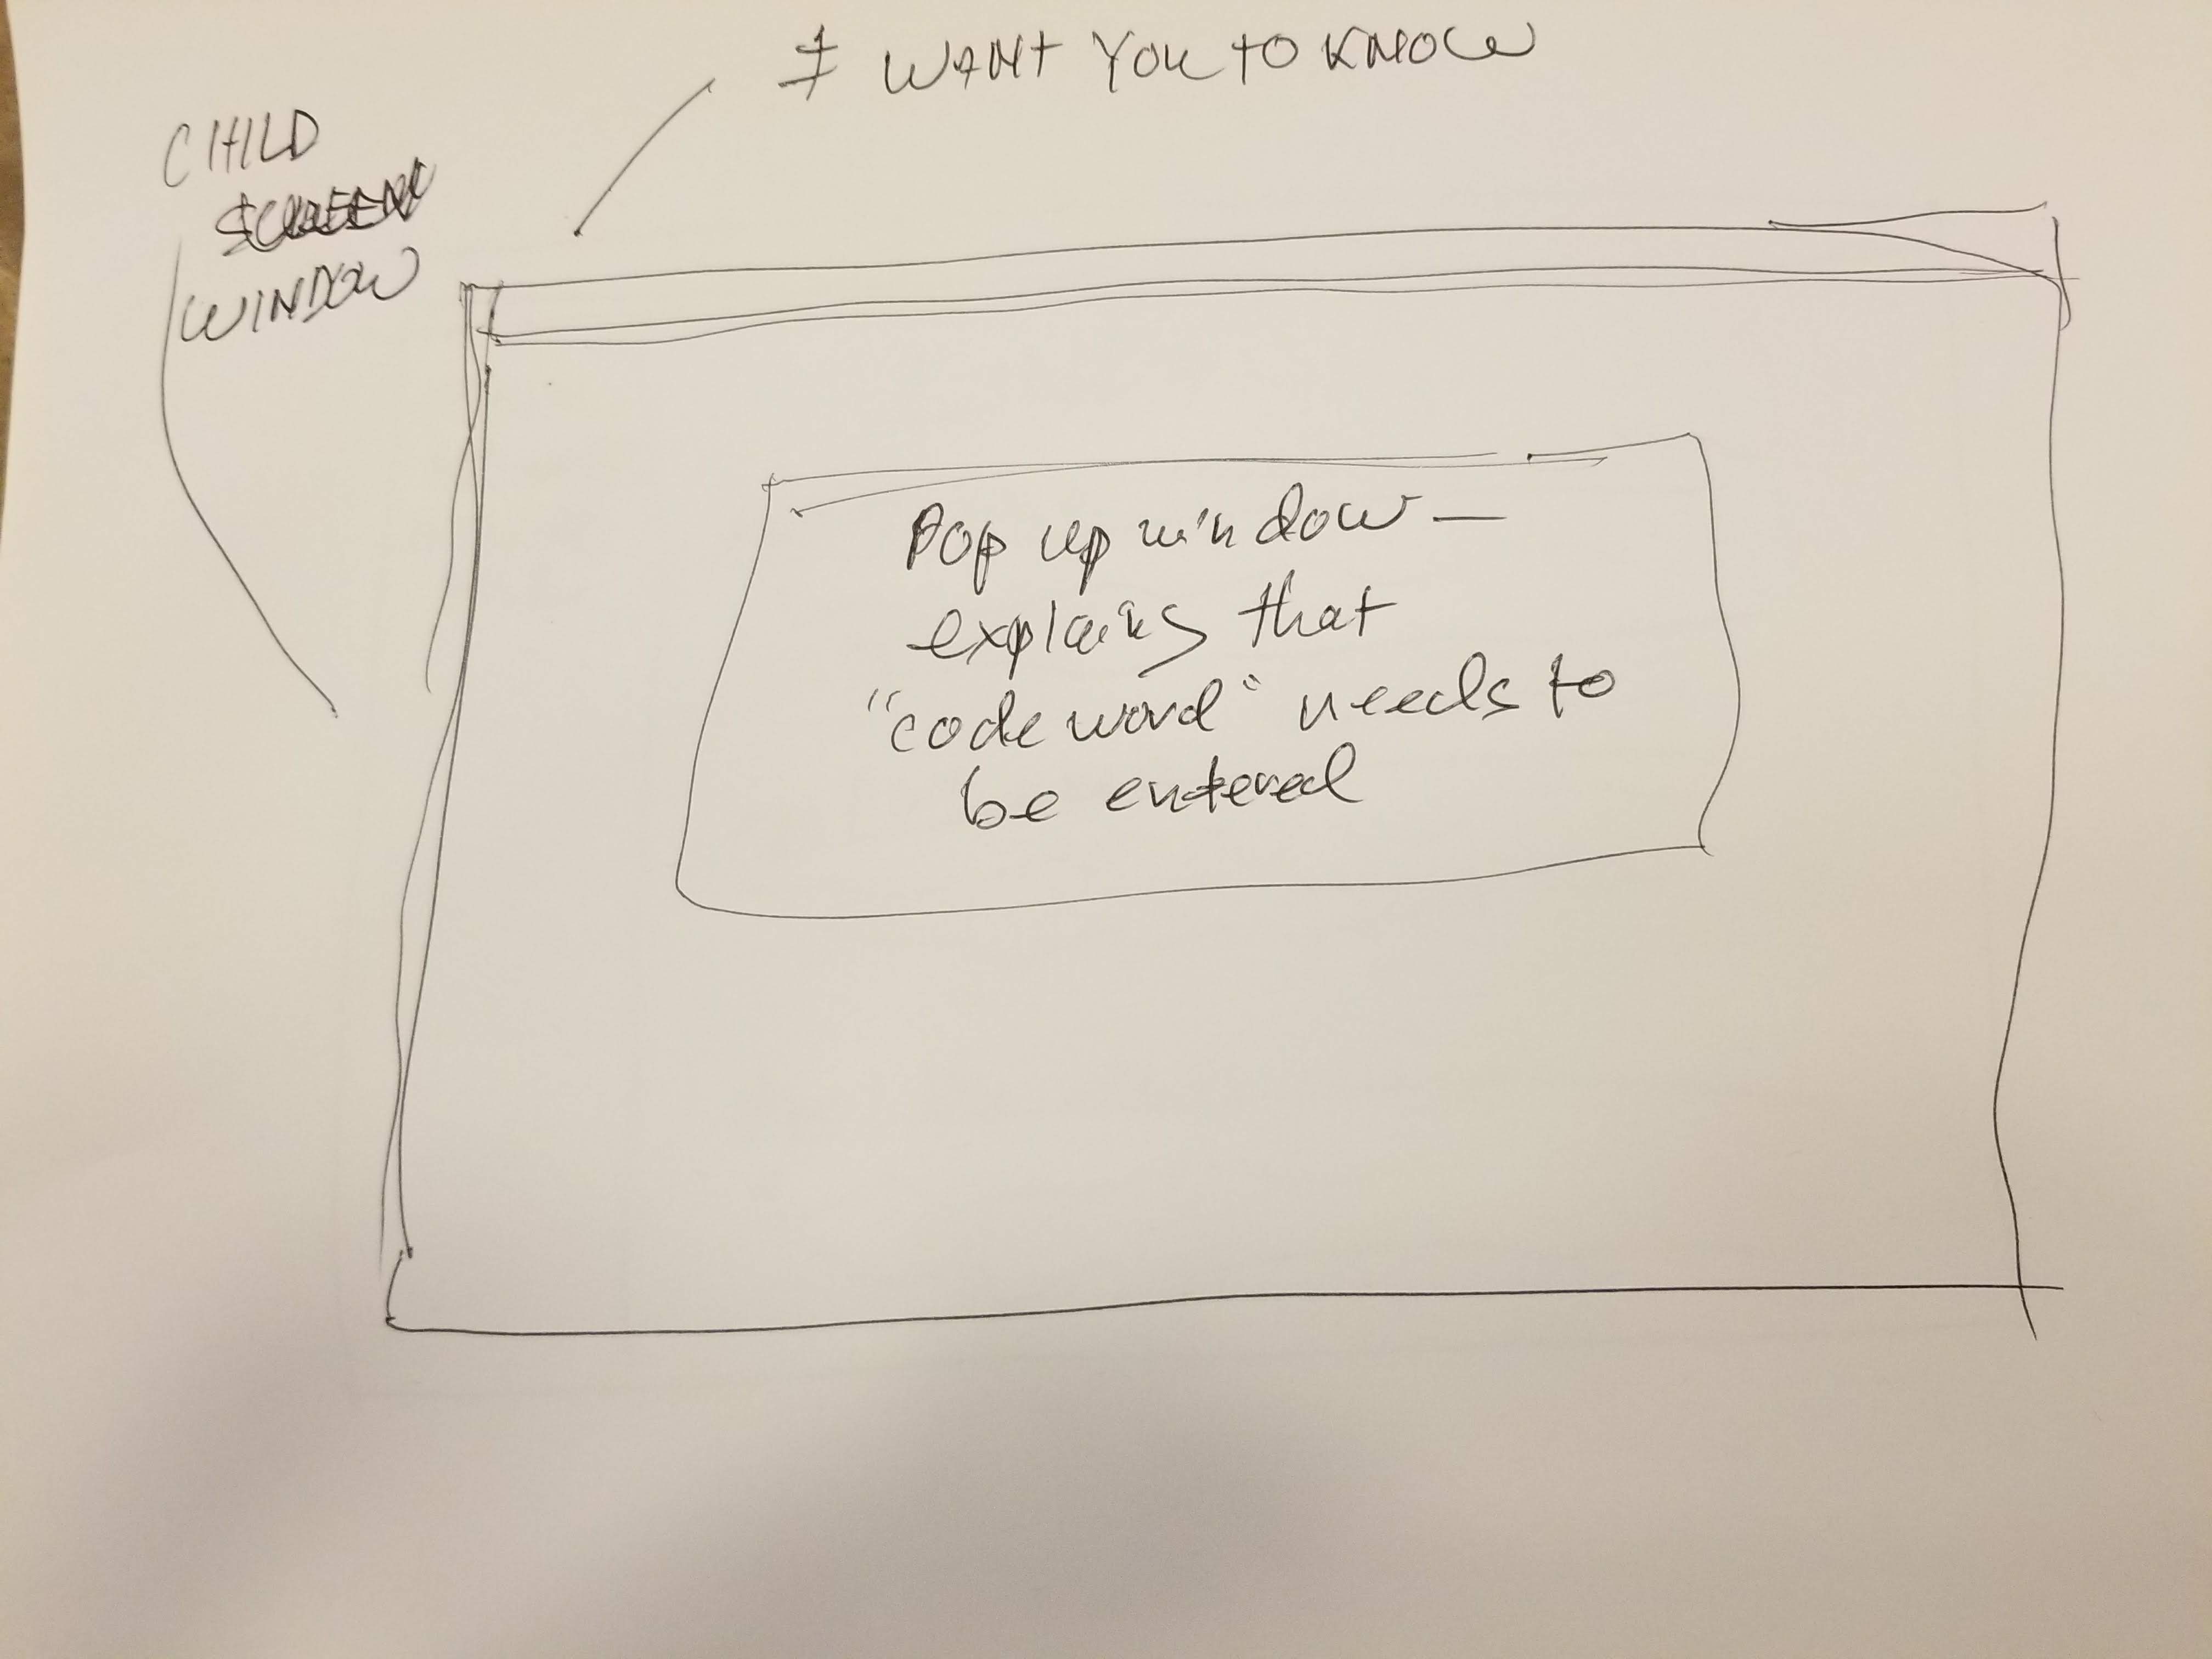 I WANT YOU TO KNOW
CHILD
SCREEN
WINDOW
Pop up window —
explains that
"code word" needs to
be entered